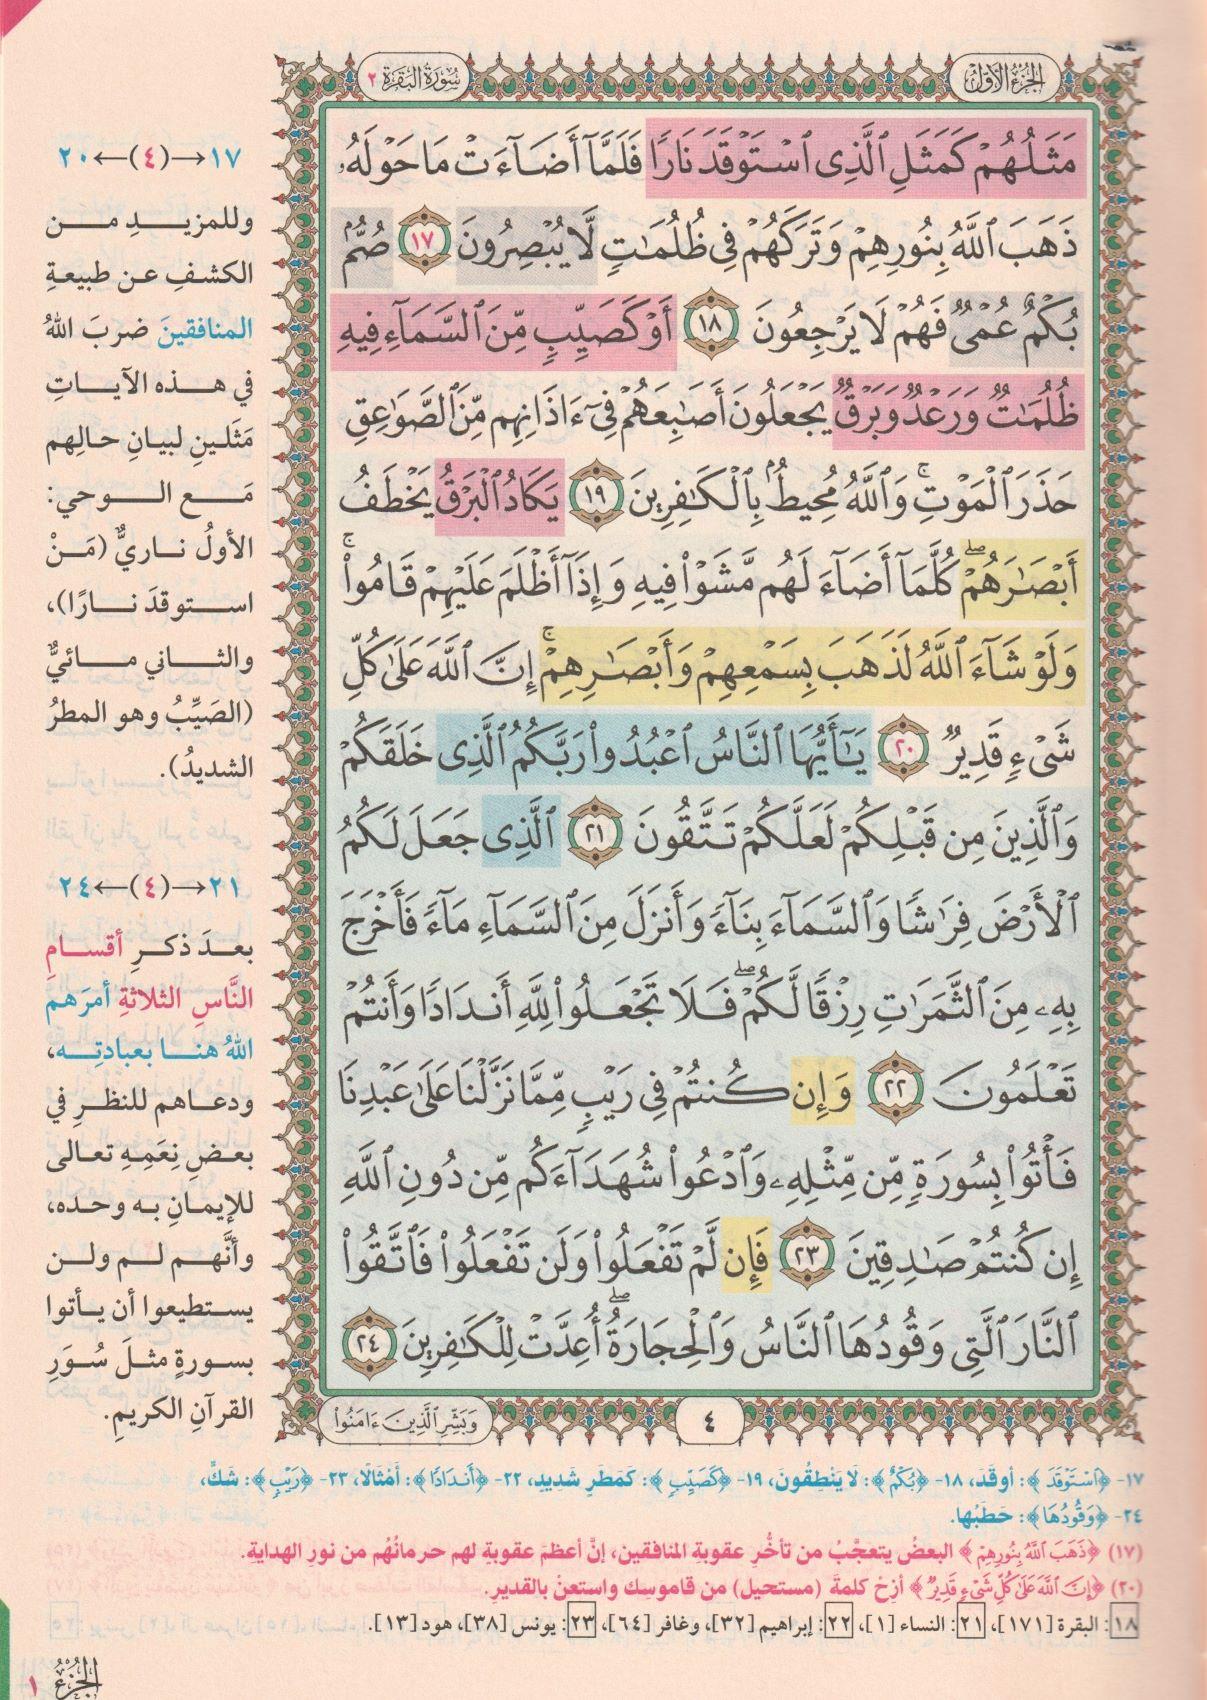 الجزء الأول
سورة البقرة ٢
مَثَلُهُمْ كَمَثَلِ ٱلَّذِى ٱسْتَوْقَدَ نَارًا فَلَمَّآ أَضَآءَتْ مَا حَوْلَهُۥ
ذَهَبَ ٱللَّهُ بِنُورِهِمْ وَتَرَكَهُمْ فِى ظُلُمَٰتٍ لَّا يُبْصِرُونَ ١٧ صُمٌّۢ
بُكْمٌ عُمْىٌ فَهُمْ لَا يَرْجِعُونَ ١٨ أَوْ كَصَيِّبٍ مِّنَ ٱلسَّمَآءِ فِيهِ
ظُلُمَٰتٌ وَرَعْدٌ وَبَرْقٌ يَجْعَلُونَ أَصَٰبِعَهُمْ فِىٓ ءَاذَانِهِم مِّنَ ٱلصَّوَٰعِقِ
حَذَرَ ٱلْمَوْتِ ۚ وَٱللَّهُ مُحِيطٌۢ بِٱلْكَٰفِرِينَ ١٩ يَكَادُ ٱلْبَرْقُ يَخْطَفُ
أَبْصَٰرَهُمْ ۖ كُلَّمَآ أَضَآءَ لَهُم مَّشَوْا۟ فِيهِ وَإِذَآ أَظْلَمَ عَلَيْهِمْ قَامُوا۟ ۚ
وَلَوْ شَآءَ ٱللَّهُ لَذَهَبَ بِسَمْعِهِمْ وَأَبْصَٰرِهِمْ ۚ إِنَّ ٱللَّهَ عَلَىٰ كُلِّ
شَىْءٍ قَدِيرٌ ٢٠ يَٰٓأَيُّهَا ٱلنَّاسُ ٱعْبُدُوا۟ رَبَّكُمُ ٱلَّذِى خَلَقَكُمْ
وَٱلَّذِينَ مِن قَبْلِكُمْ لَعَلَّكُمْ تَتَّقُونَ ٢١ ٱلَّذِى جَعَلَ لَكُمُ
ٱلْأَرْضَ فِرَٰشًا وَٱلسَّمَآءَ بِنَآءً وَأَنزَلَ مِنَ ٱلسَّمَآءِ مَآءً فَأَخْرَجَ
بِهِۦ مِنَ ٱلثَّمَرَٰتِ رِزْقًا لَّكُمْ ۖ فَلَا تَجْعَلُوا۟ لِلَّهِ أَندَادًا وَأَنتُمْ
تَعْلَمُونَ ٢٢ وَإِن كُنتُمْ فِى رَيْبٍ مِّمَّا نَزَّلْنَا عَلَىٰ عَبْدِنَا
فَأْتُوا۟ بِسُورَةٍ مِّن مِّثْلِهِۦ وَٱدْعُوا۟ شُهَدَآءَكُم مِّن دُونِ ٱللَّهِ
إِن كُنتُمْ صَٰدِقِينَ ٢٣ فَإِن لَّمْ تَفْعَلُوا۟ وَلَن تَفْعَلُوا۟ فَٱتَّقُوا۟
ٱلنَّارَ ٱلَّتِى وَقُودُهَا ٱلنَّاسُ وَٱلْحِجَارَةُ ۖ أُعِدَّتْ لِلْكَٰفِرِينَ ٢٤
٤
وَبَشِّرِ ٱلَّذِينَ ءَامَنُوا۟
١٧→(٤)←٢٠
وللمزيدِ من
الكشفِ عن طبيعةِ
المنافقينَ ضربَ اللهُ
في هذه الآياتِ
مَثَلينِ لبيانِ حالِهم
مَع الوحي:
الأولُ ناريٌّ (مَنْ
استوقدَ نارًا)،
والثاني مائيٌّ
(الصَيِّبُ وهو المطرُ
الشديدُ).
٢١→(٤)←٢٤
بعدَ ذكرِ أقسامِ
النَّاسِ الثلاثةِ أمرَهم
اللهُ هنا بعبادتِه،
ودعاهم للنظرِ في
بعضِ نِعَمِهِ تعالى
للإيمانِ به وحده،
وأنَّهم لم ولن
يستطيعوا أن يأتوا
بسورةٍ مثلَ سُوَرِ
القرآنِ الكريمِ.
١٧- ﴿ٱسْتَوْقَدَ﴾: أوقَدَ، ١٨- ﴿بُكْمٌ﴾: لا يَنْطِقُونَ، ١٩- ﴿كَصَيِّبٍ﴾: كَمَطَرٍ شَدِيدٍ، ٢٢- ﴿أَندَادًا﴾: أمْثَالًا، ٢٣- ﴿رَيْبٍ﴾: شَكٍّ،
٢٤- ﴿وَقُودُهَا﴾: حَطَبُها.
(١٧) ﴿ذَهَبَ ٱللَّهُ بِنُورِهِمْ﴾ البعضُ يتعجَّبُ من تأخُّرِ عقوبةِ المنافقين، إنَّ أعظمَ عقوبةٍ لهم حرمانُهُم من نورِ الهدايةِ.
(٢٠) ﴿إِنَّ ٱللَّهَ عَلَىٰ كُلِّ شَىْءٍ قَدِيرٌ﴾ أزِحْ كلمةَ (مستحيل) من قاموسِك واستعنْ بالقديرِ.
١٨: البقرة [١٧١]، ٢١: النساء [١]، ٢٢: إبراهيم [٣٢]، وغافر [٦٤]، ٢٣: يونس [٣٨]، هود [١٣].
الجزء ١